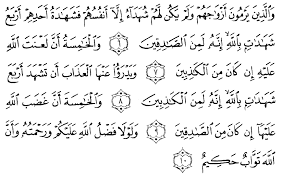 وَالَّذِينَ يَرْمُونَ أَزْوَاجَهُمْ وَلَمْ يَكُن لَّهُمْ شُهَدَاءُ إِلَّا أَنفُسُهُمْ فَشَهَادَةُ أَحَدِهِمْ أَرْبَعُ
شَهَادَاتٍ بِاللَّهِ إِنَّهُ لَمِنَ الصَّادِقِينَ ٦ وَالْخَامِسَةُ أَنَّ لَعْنَتَ اللَّهِ
عَلَيْهِ إِن كَانَ مِنَ الْكَاذِبِينَ ٧ وَيَدْرَؤُا عَنْهَا الْعَذَابَ أَن تَشْهَدَ أَرْبَعَ
شَهَادَاتٍ بِاللَّهِ إِنَّهُ لَمِنَ الْكَاذِبِينَ ٨ وَالْخَامِسَةَ أَنَّ غَضَبَ اللَّهِ
عَلَيْهَا إِن كَانَ مِنَ الصَّادِقِينَ ٩ وَلَوْلَا فَضْلُ اللَّهِ عَلَيْكُمْ وَرَحْمَتُهُ وَأَنَّ
اللَّهَ تَوَّابٌ حَكِيمٌ ١٠